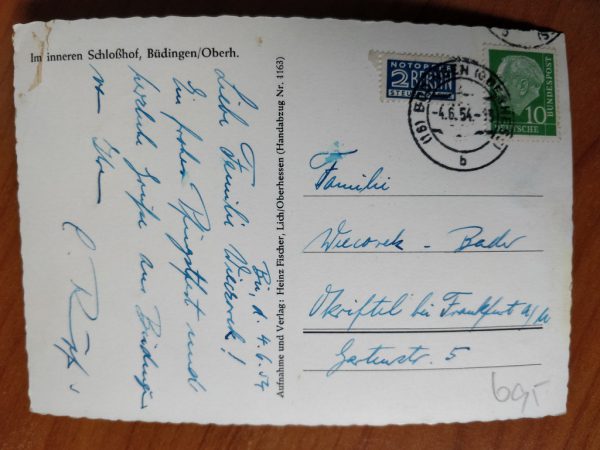 Im inneren Schloßhof, Büdingen/Oberh.
Bü, d. 4.6.54
Liebe Familie Wiecorek!
Ein frohes Pfingstfest und
herzliche Grüße aus Büdingen
von Ihrer
Aufnahme und Verlag: Heinz Fischer, Lich/Oberhessen (Handabzug Nr. 1163)
NOTOPFER
2 BERLIN
STEUERMARKE
(16) BÜDINGEN (OBERHESS)
-4.6.54.-
b
10
DEUTSCHE
BUNDESPOST
Familie
Wiecorek - Bader
Okriftel bei Frankfurt a/M
Gartenstr. 5